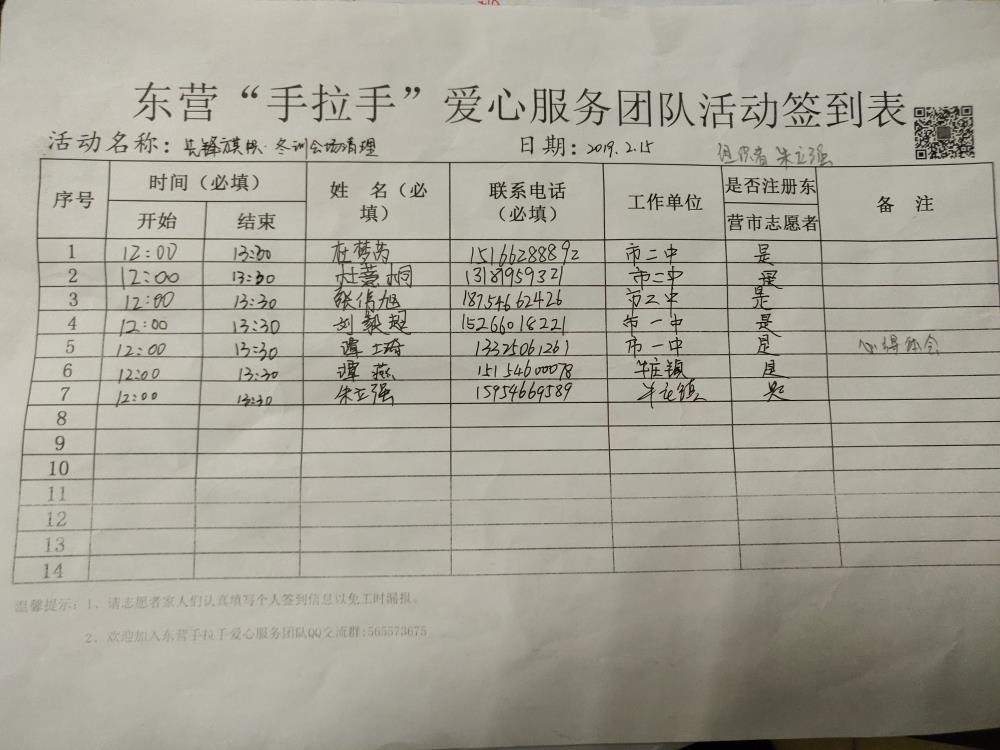 东营“手拉手”爱心服务团队活动签到表
活动名称：先锋旗帜·冬训会场清理 日期：2019.2.15 组织者 朱立强
序号 时间（必填） 姓 名（必填） 联系电话（必填） 工作单位 是否注册东营市志愿者 备 注
开始 结束
1 12:00 13:30 杜梦芮 15166288892 市二中 是
2 12:00 13:30 杜薏桐 13181959321 市二中 是
3 12:00 13:30 张倍旭 18754662426 市二中 是
4 12:00 13:30 刘毅超 15266018221 市一中 是
5 12:00 13:30 谭士琦 13325061261 市一中 是 心得体会
6 12:00 13:30 谭燕 15154600078 牛庄镇 是
7 12:00 13:30 朱立强 15954669589 牛庄镇 是
8
9
10
11
12
13
14
温馨提示：1、请志愿者家人们认真填写个人签到信息以免工时漏报。
2、欢迎加入东营手拉手爱心服务团队QQ交流群:565573675